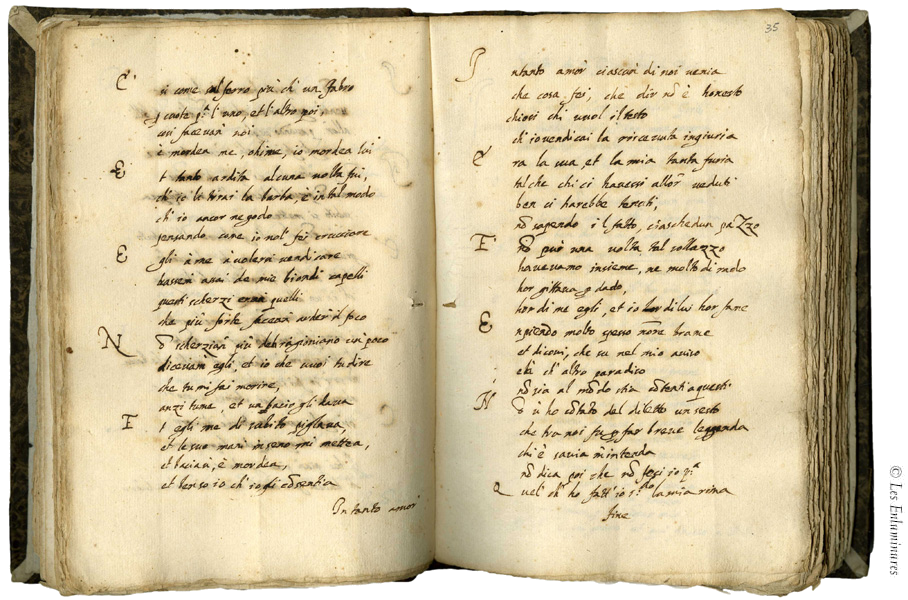 E
si come col ferro più ch' un fabro
cosi facevan noi
è mordea me, ohime, io mordea lui
E
t tanto ardita alcuna volta fui,
ch' io le tirai la barba, è in tal modo
ch' io ancor ne godo
pensando come io nol' fei crucciare
E
gli à me a volersi vendicare
assai de miei biondi capelli
questi scherzi eran quelli
che più forte facean arder' il foco
N
ō scherziam' più deh ragioniano un' poco
dicevam egli, et io che vuoi tu dire
che tu mi fai morire,
anzi tu me, et un bacio gli dava
T
t egli me di subito pigliava,
et le sue mani in seno mi mettea,
et baciava, è mordea,
In tanto amor'
35
I
ntanto amor' ciascun di noi venia
che cosa fei, che dir nō è honesto
chiosi chi vuol il testo
ch' io vendicai la ricevuta ingiuria
E
ra la sua et la mia tanta furia
talche chi ci havessi allor' veduti
ben ci harebbe tenuti,
nō sapendo il fatto, ciaschedun pazzo
T
nō pur una volta tal sollazzo
havevamo insieme, ne molto di rado
hor gittava dado,
hor di me egli, et io di lui hor fane
E
mpiendo molto spesso nōre brame
et dicovi, che su nel mio aviso
ch' altro paradiso
nō sia al mōdo chi
H
or' vi ho cōtato del diletto un sesto
che tra noi fu p far breve leggenda
chi è savia m'intenda
nō dica poi che nō
Q
uel' ch' ho fatt' io la mia rima
fine
© Les Enluminures